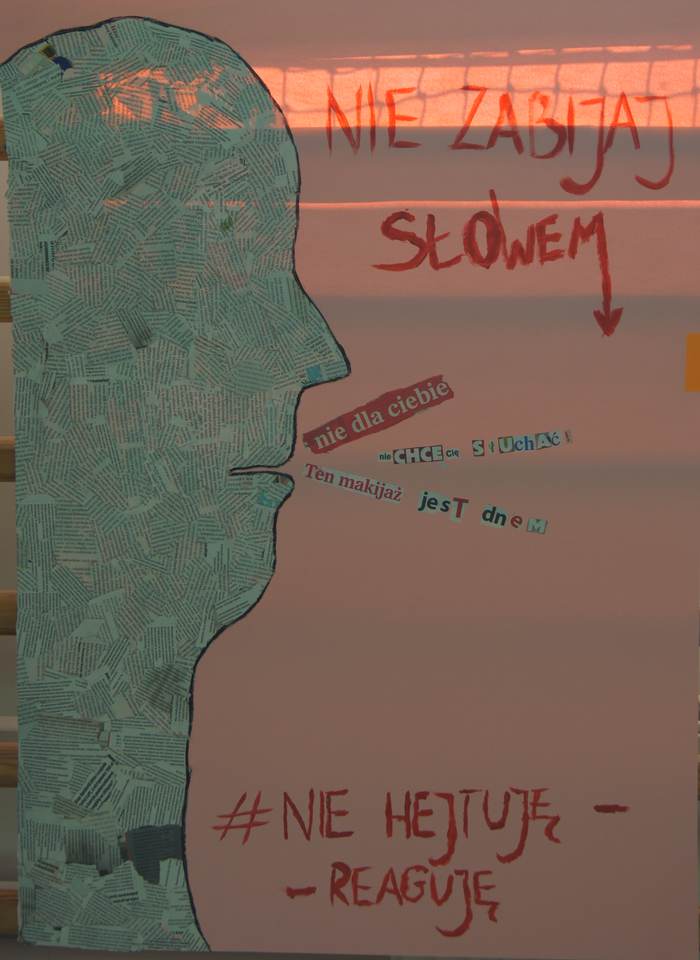 NIE ZABIJAJ
SŁOWEM
nie dla ciebie
nie CHCE cię SłUchAć !
Ten makijaż jesT dneM
#NIE HEJTUJĘ -
- REAGUJĘ